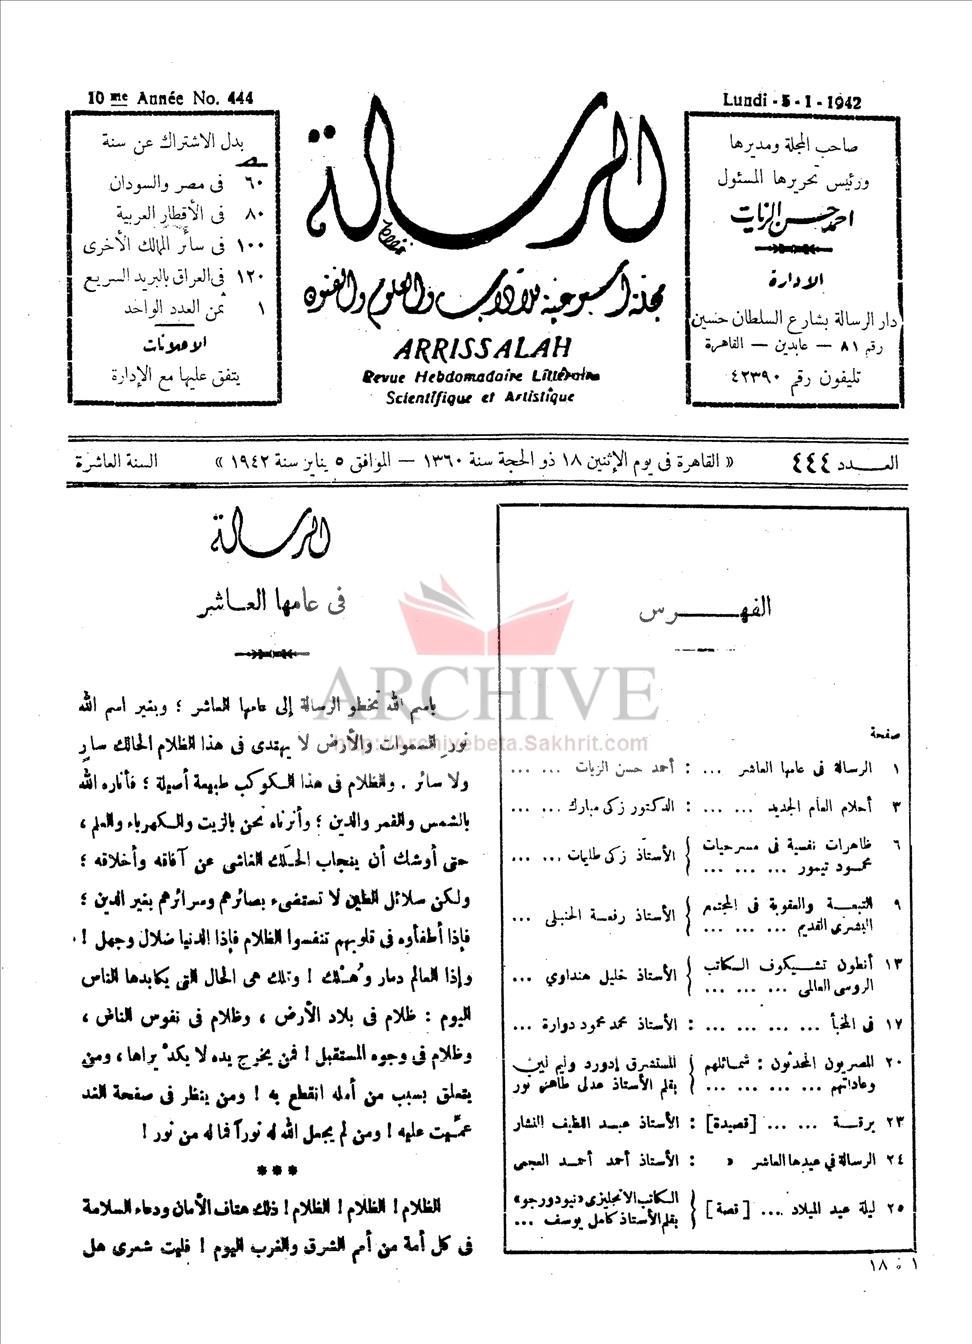 10me Année No. 444
Lundi - 5 - 1 - 1942
بدل الاشتراك عن سنة
٦٠ فى مصر والسودان
٨٠ فى الأقطار العربية
١٠٠ فى سائر الممالك الأخرى
١٢٠ فى العراق بالبريد السريع
١ ثمن العدد الواحد
الاعلانات
يتفق عليها مع الإدارة
الرسالة
مجلة أسبوعية للآداب والعلوم والفنون
ARRISSALAH
Revue Hebdomadaire Littéraire
Scientifique et Artistique
صاحب المجلة ومديرها
ورئيس تحريرها المسئول
احمد حسن الزيات
الادارة
دار الرسالة بشارع السلطان حسين
رقم ٨١ — عابدين — القاهرة
تليفون رقم ٤٢٣٩٠
العـــدد ٤٤٤ « القاهرة فى يوم الإثنين ١٨ ذو الحجة سنة ١٣٦٠ — الموافق ٥ يناير سنة ١٩٤٢ » السنة العاشرة
الفهـــــرس
صفحة
١ الرسالة فى عامها العاشر ... : أحمد حسن الزيات ... ...
٣ أحلام العام الجديد ... ... : الدكتور زكى مبارك ... ...
٦ ظاهرات نفسية فى مسرحيات
محمود تيمور ... ... ... } الأستاذ زكى طليمات ... ...
٩ التبعـة والعقوبة فى المجتمع
البشرى القديم ... ... ... } الأستاذ رفعة الحنبلى ...
١٣ أنطون تشـيكوف الـكاتب
الروسى العالمى ... ... ... } الأستاذ خليل هنداوي ...
١٧ فى المخبأ ... ... ... ... : الأستاذ محمد محمود دوارة ...
٢٠ المصريون المحدثون : شمائلهم
وعاداتهم ... ... ... ... } للمستشرق إدورد وليم لين
بقلم الأستاذ عدلى طاهر نور
٢٣ برقـــة ... ... [قصيدة] : الأستاذ عبـد اللطيف النشار
٢٤ الرسالة في عيدها العاشر » : الأستاذ أحمد أحمـد العجمى
٢٥ ليلة عيد الميلاد ... [قصة] } الـكاتب الانجليزى «تيودورجو»
بقلم الأستاذ كامل يوسف ...
١ ٠ ١٨
الرسالة
فى عامها العـاشر
باسم الله تخطو الرسالة إلى عامها العاشر ؛ وبغير اسم الله
نور السموات والأرض لا يهتدى فى هذا الظلام الحالك سارٍ
ولا سائر . والظلام فى هذا الـكوكب طبيعة أصيلة ؛ فأناره الله
بالشمس والقمر والدين ؛ وأنرناه نحن بالزيت والكهرباء والعلم ،
حتى أوشك أن ينجاب الحلَك الغاشى عن آفاقه وأخلاقه ؛
ولكن سلائل الطين لا تستضىء بصائرهم وسرائرهم بغير الدين ؛
فإذا أطفأوه فى قلوبهم تنفسوا الظلام فإذا الدنيا ضلال وجهل !
وإذا العالم دمار وهُلْك ! وتلك هى الحال التى يكابدها الناس
اليوم : ظلام فى بلاد الأرض ، وظلام فى نفوس الناس ،
وظلام فى وجوه المستقبل ! فمن يخرج يده لا يكد يراها ، ومن
يتعلق بسبب من أمله انقطع به ! ومن ينظر فى صفحة الغد
عمِّيت عليه ! ومن لم يجعل الله له نوراً فما له من نور !
***
الظلام ! الظلام ! الظلام ! ذلك هتاف الأمان ودعاء السلامة
فى كل أمة من أمم الشرق والغرب اليوم ! فليت شعرى هل
ARCHIVE
http://Archivebeta.Sakhrit.com